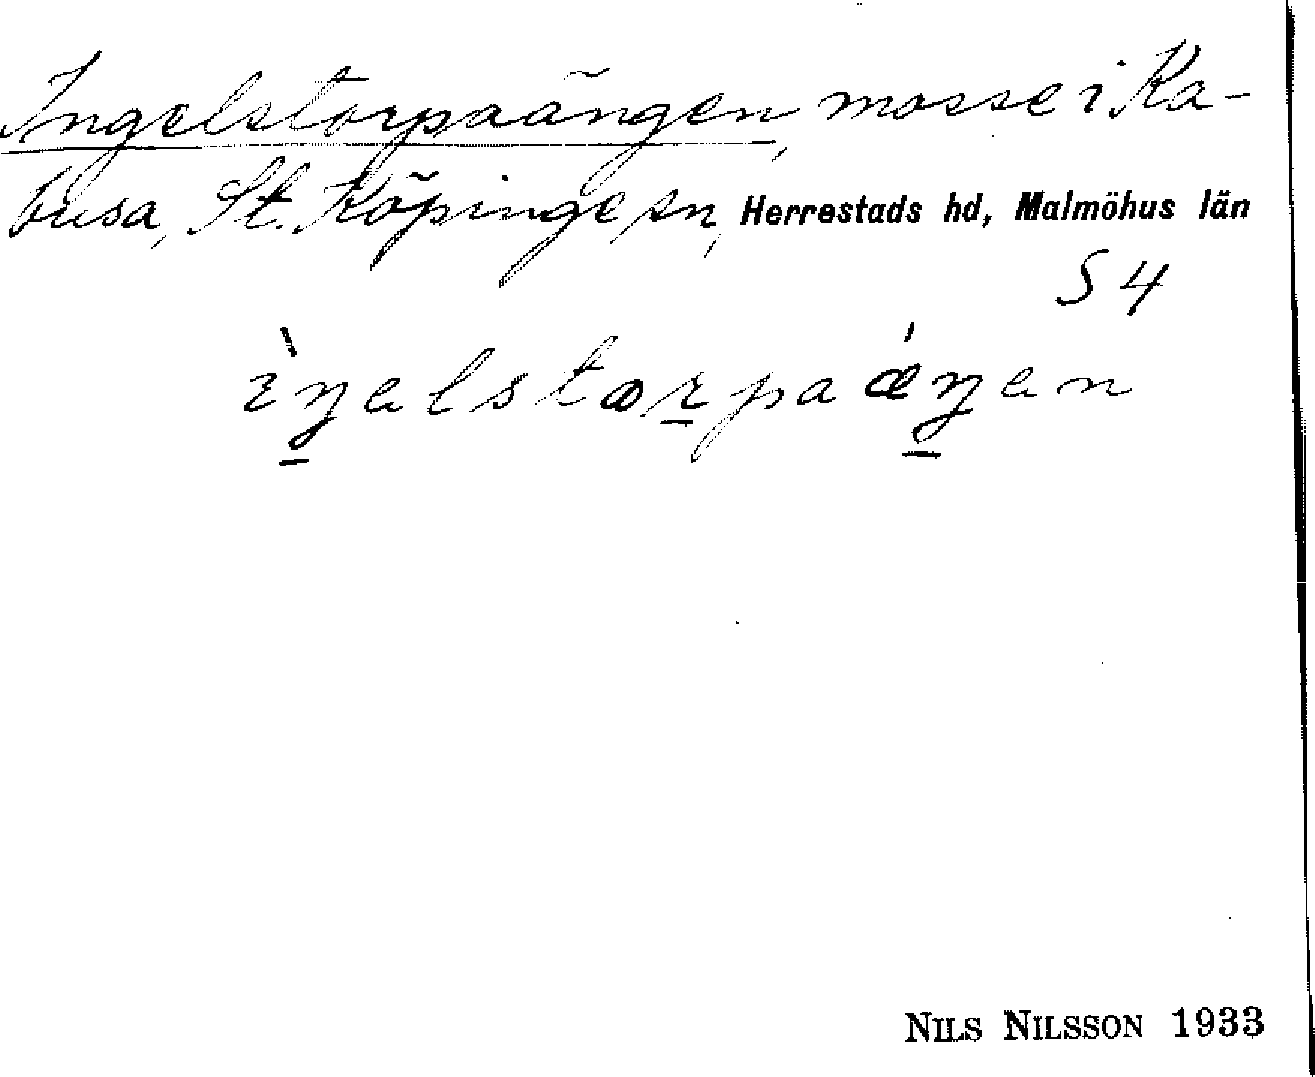 Ingelstorpaängen, mosse i Ka-
busa, St. Köpinge sn, Herrestads hd, Malmöhus län
S 4
ìŋ̱elstoṟpaǽŋ̱en
NILS NILSSON 1933